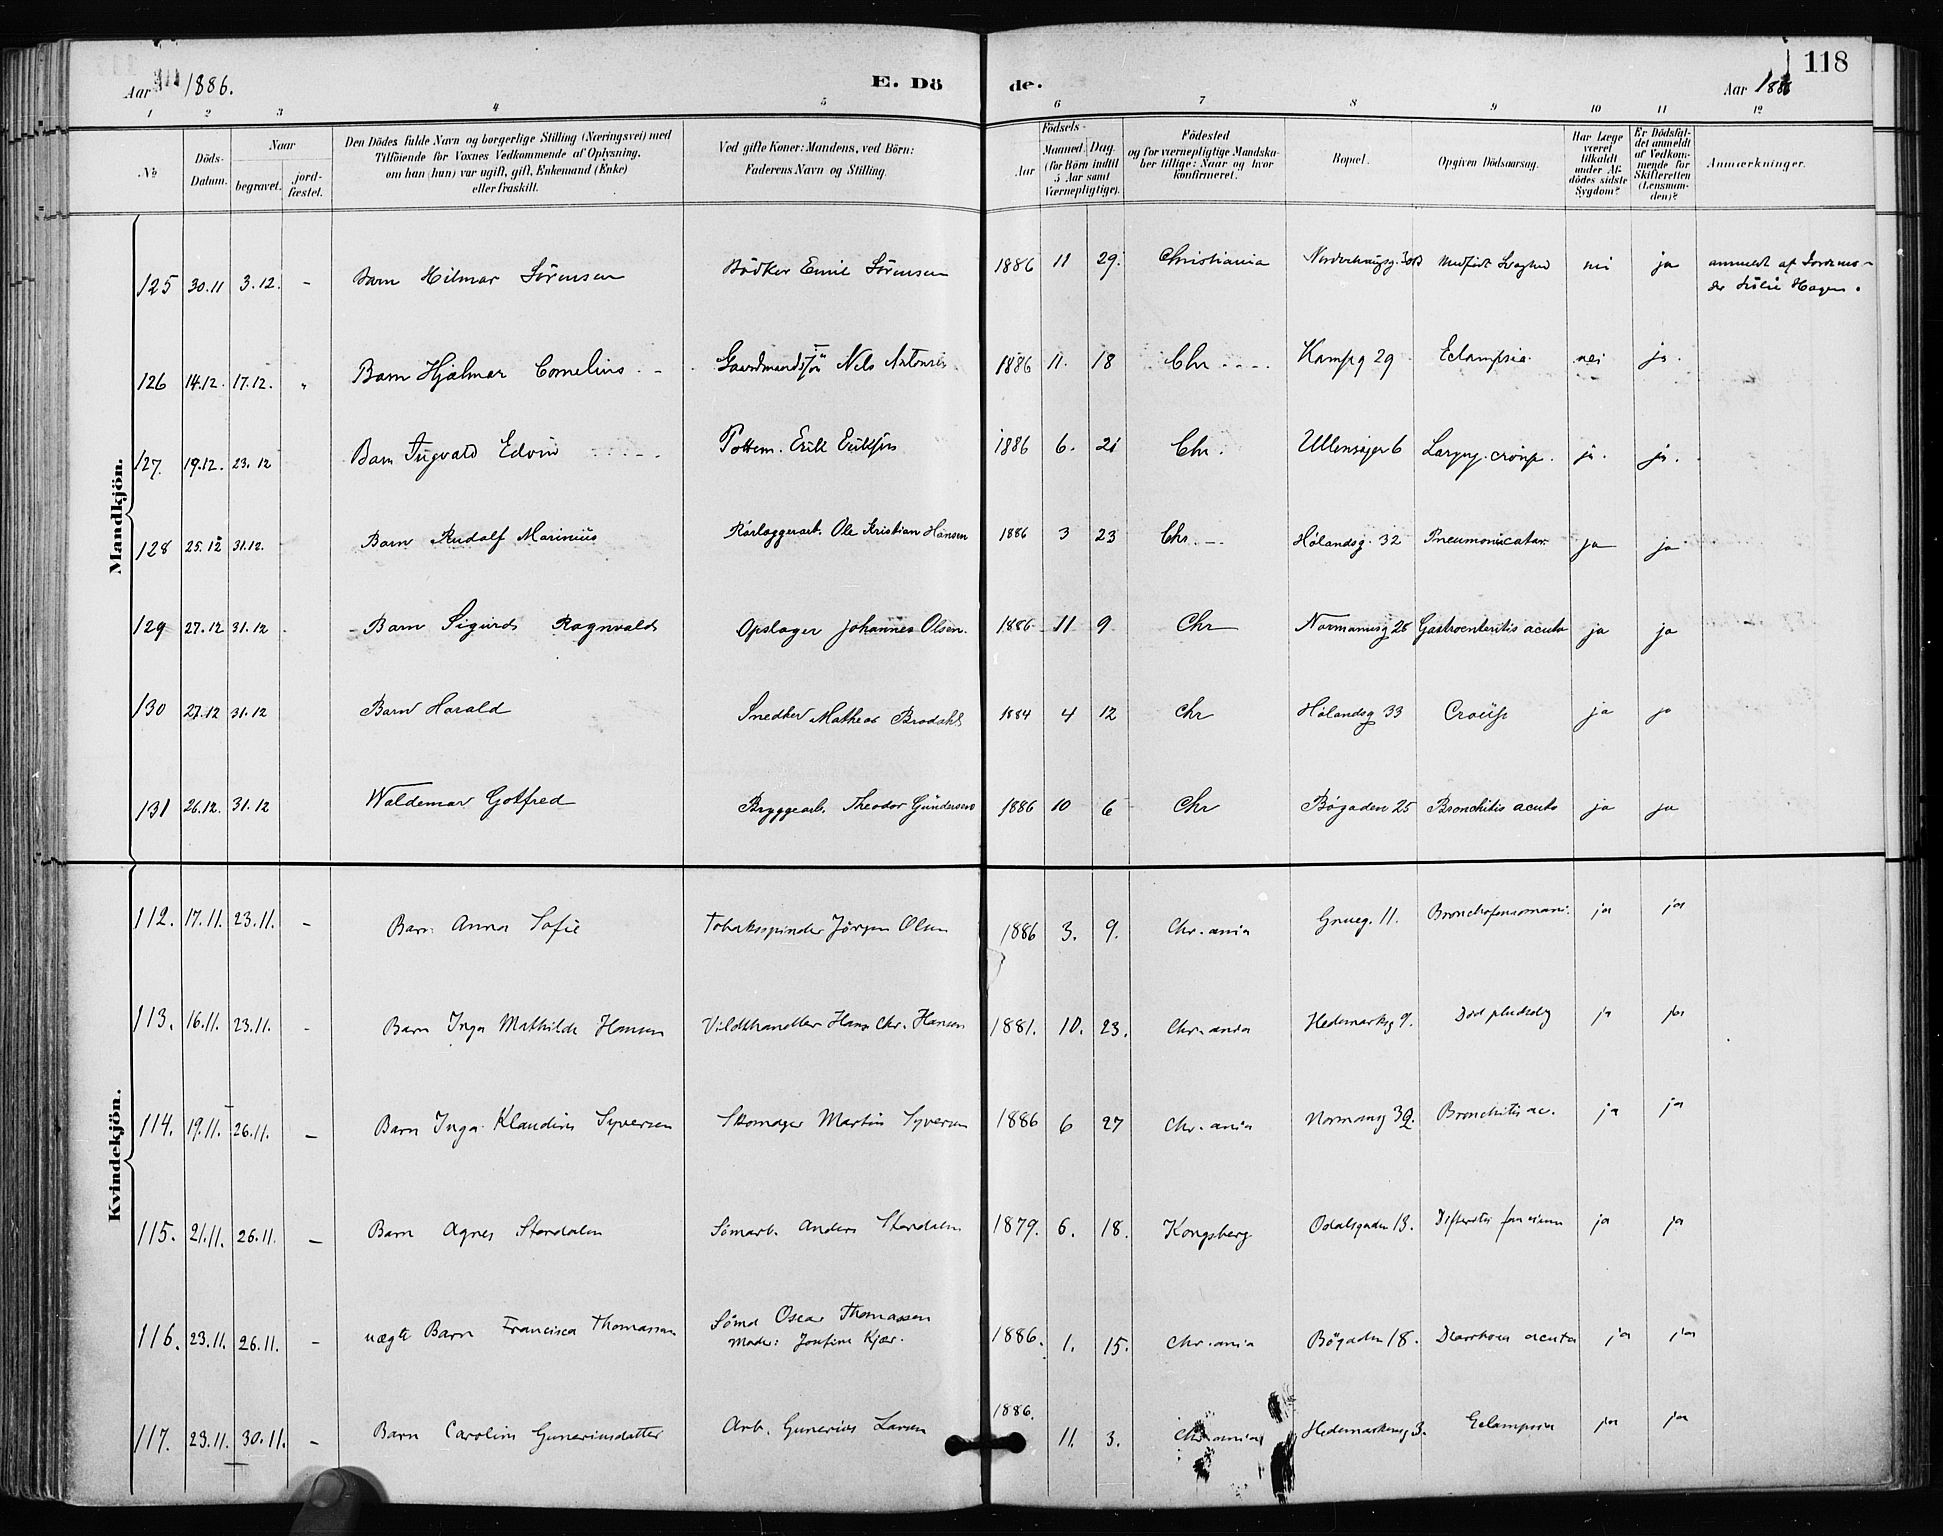 118
Aar 1886. E. Dö de. Aar 1886
1 2 3 4 5 6 7 8 9 10 11 12
No Döds-Datum. Naar begravet. jord-fæstet. Den Dödes fulde Navn og borgerlige Stilling (Næringsvei) med Tilföiende for Voxnes Vedkommende af Oplysning, om han (hun) var ugift, gift, Enkemand (Enke) eller fraskilt. Ved gifte Koner: Mandens, ved Börn: Faderens Navn og Stilling. Födsels- Aar Maaned. Dag. (for Börn indtil 5 Aar samt Værnepligtige). Födested og for værnepligtige Mandskaber tillige: Naar og hvor konfirmeret. Bopæl. Opgiven Dödsaarsag. Har Læge været tilkaldt under Afdödes sidste Sygdom? Er Dödsfaldet anmeldt af Vedkommende for Skifteretten (Lensmanden)? Anmærkninger.
Mandkjön.
125 30.11 3.12. - Barn Hilmar Sörensen Bödker Emil Sörensen 1886 11 29. Christiania Medfödt Svaghed nei ja anmeldt af Jordemo-
der Hagen.
126 14.12. 17.12. " Barn Hjalmar Cornelius - Nils 1886 11. 18 Chr.... Kampg 29 Eclampsia. nei ja.
127. 19.12. 23.12 Barn Ingvald Edvin Pottem. Erik Eriksen 1886 6. 21 Chr. Ullensager 6 Laryng. croup. ja. ja.
128 25.12 31.12. Barn Rudolf Marinius Rörlæggerarb. Ole Kristian Hansen 1886 3 23 Chr. - Hölandsg. 32 Pneumoni catar. ja ja
129 27.12 31.12 - Barn Sigurd Ragnvald Opslager Johannes Olsen. 1886 11 9 Chr Normannsg 28 Gastroenteritis acuta ja ja
130 27.12 31.12 Barn Harald Snedker Mathias 1884 4 12 Chr Hölandsg 33 Croup ja ja
131 26.12. 31.12 Waldemar Gotfred Bryggearb. Theodor Gundersen 1886 10 6 Chr Bögaden 25 Bronchitis acuta ja ja
Kvindekjön.
112. 17.11. 23.11. - Barn Anna Sofie Tobaksspinder Jörgen Olsen 1886 3. 9. Chr.ania Grueg. 11. ja ja
113. 16.11. 23.11. - Barn Inga Mathilde Hansen Vildthandler Hans Chr. Hansen 1881. 10. 23. Chr.ania Hedemarksg 9. Död pludselig ja ja
114. 19.11. 26.11. - Barn Inga Klaudine Syversen Skomager Martin Syversen 1886 6 27 Chr.ania Normansg 39 Bronchitis ac. ja ja
115. 21.11. 26.11. - Barn Agnes Stordalen Sömarb. Anders Stordalen 1879. 6. 18. Kongsberg Odalsgaden 13. Difteritis faucium ja ja
116. 23.11. 26.11. - uægte Barn Francisca Thomassen Sömd Oscar Thomassen
Moder: Josefine Kjær. 1886. 1. 15. Chr.ania Bögaden 18. Diarrhoea acuta ja ja
117. 23.11. 30.11. - Barn Caroline Guneriusdatter Arb. Gunerius Larsen 1886. 11. 3. Chr.ania Hedemarkensg 3. Eclampsia ja ja